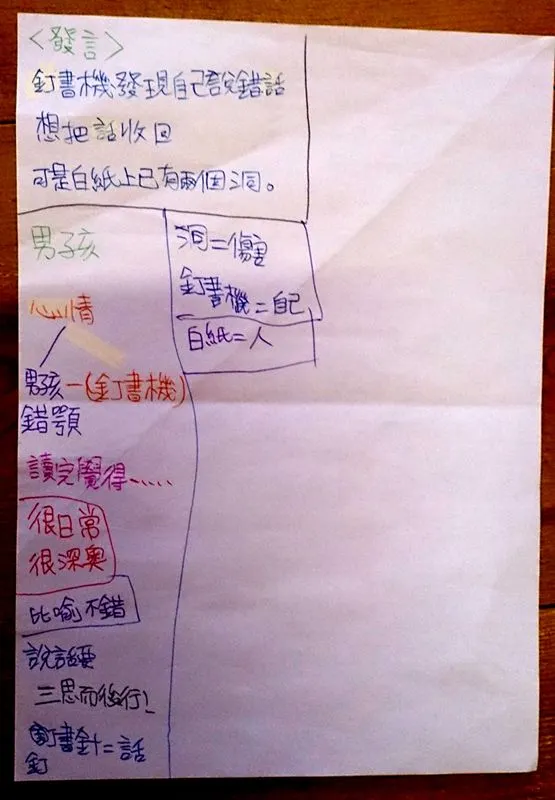 <發言>
釘書機發現自己說錯話
想把話收回
可是白紙上已有兩個洞。
洞=傷害
釘書機=自己
白紙=人
男子孩
心情
男孩-(釘書機)
錯顎
讀完覺得......
很日常
很深奧
比喻不錯
說話要
三思而後行!
釘書針=話
釘